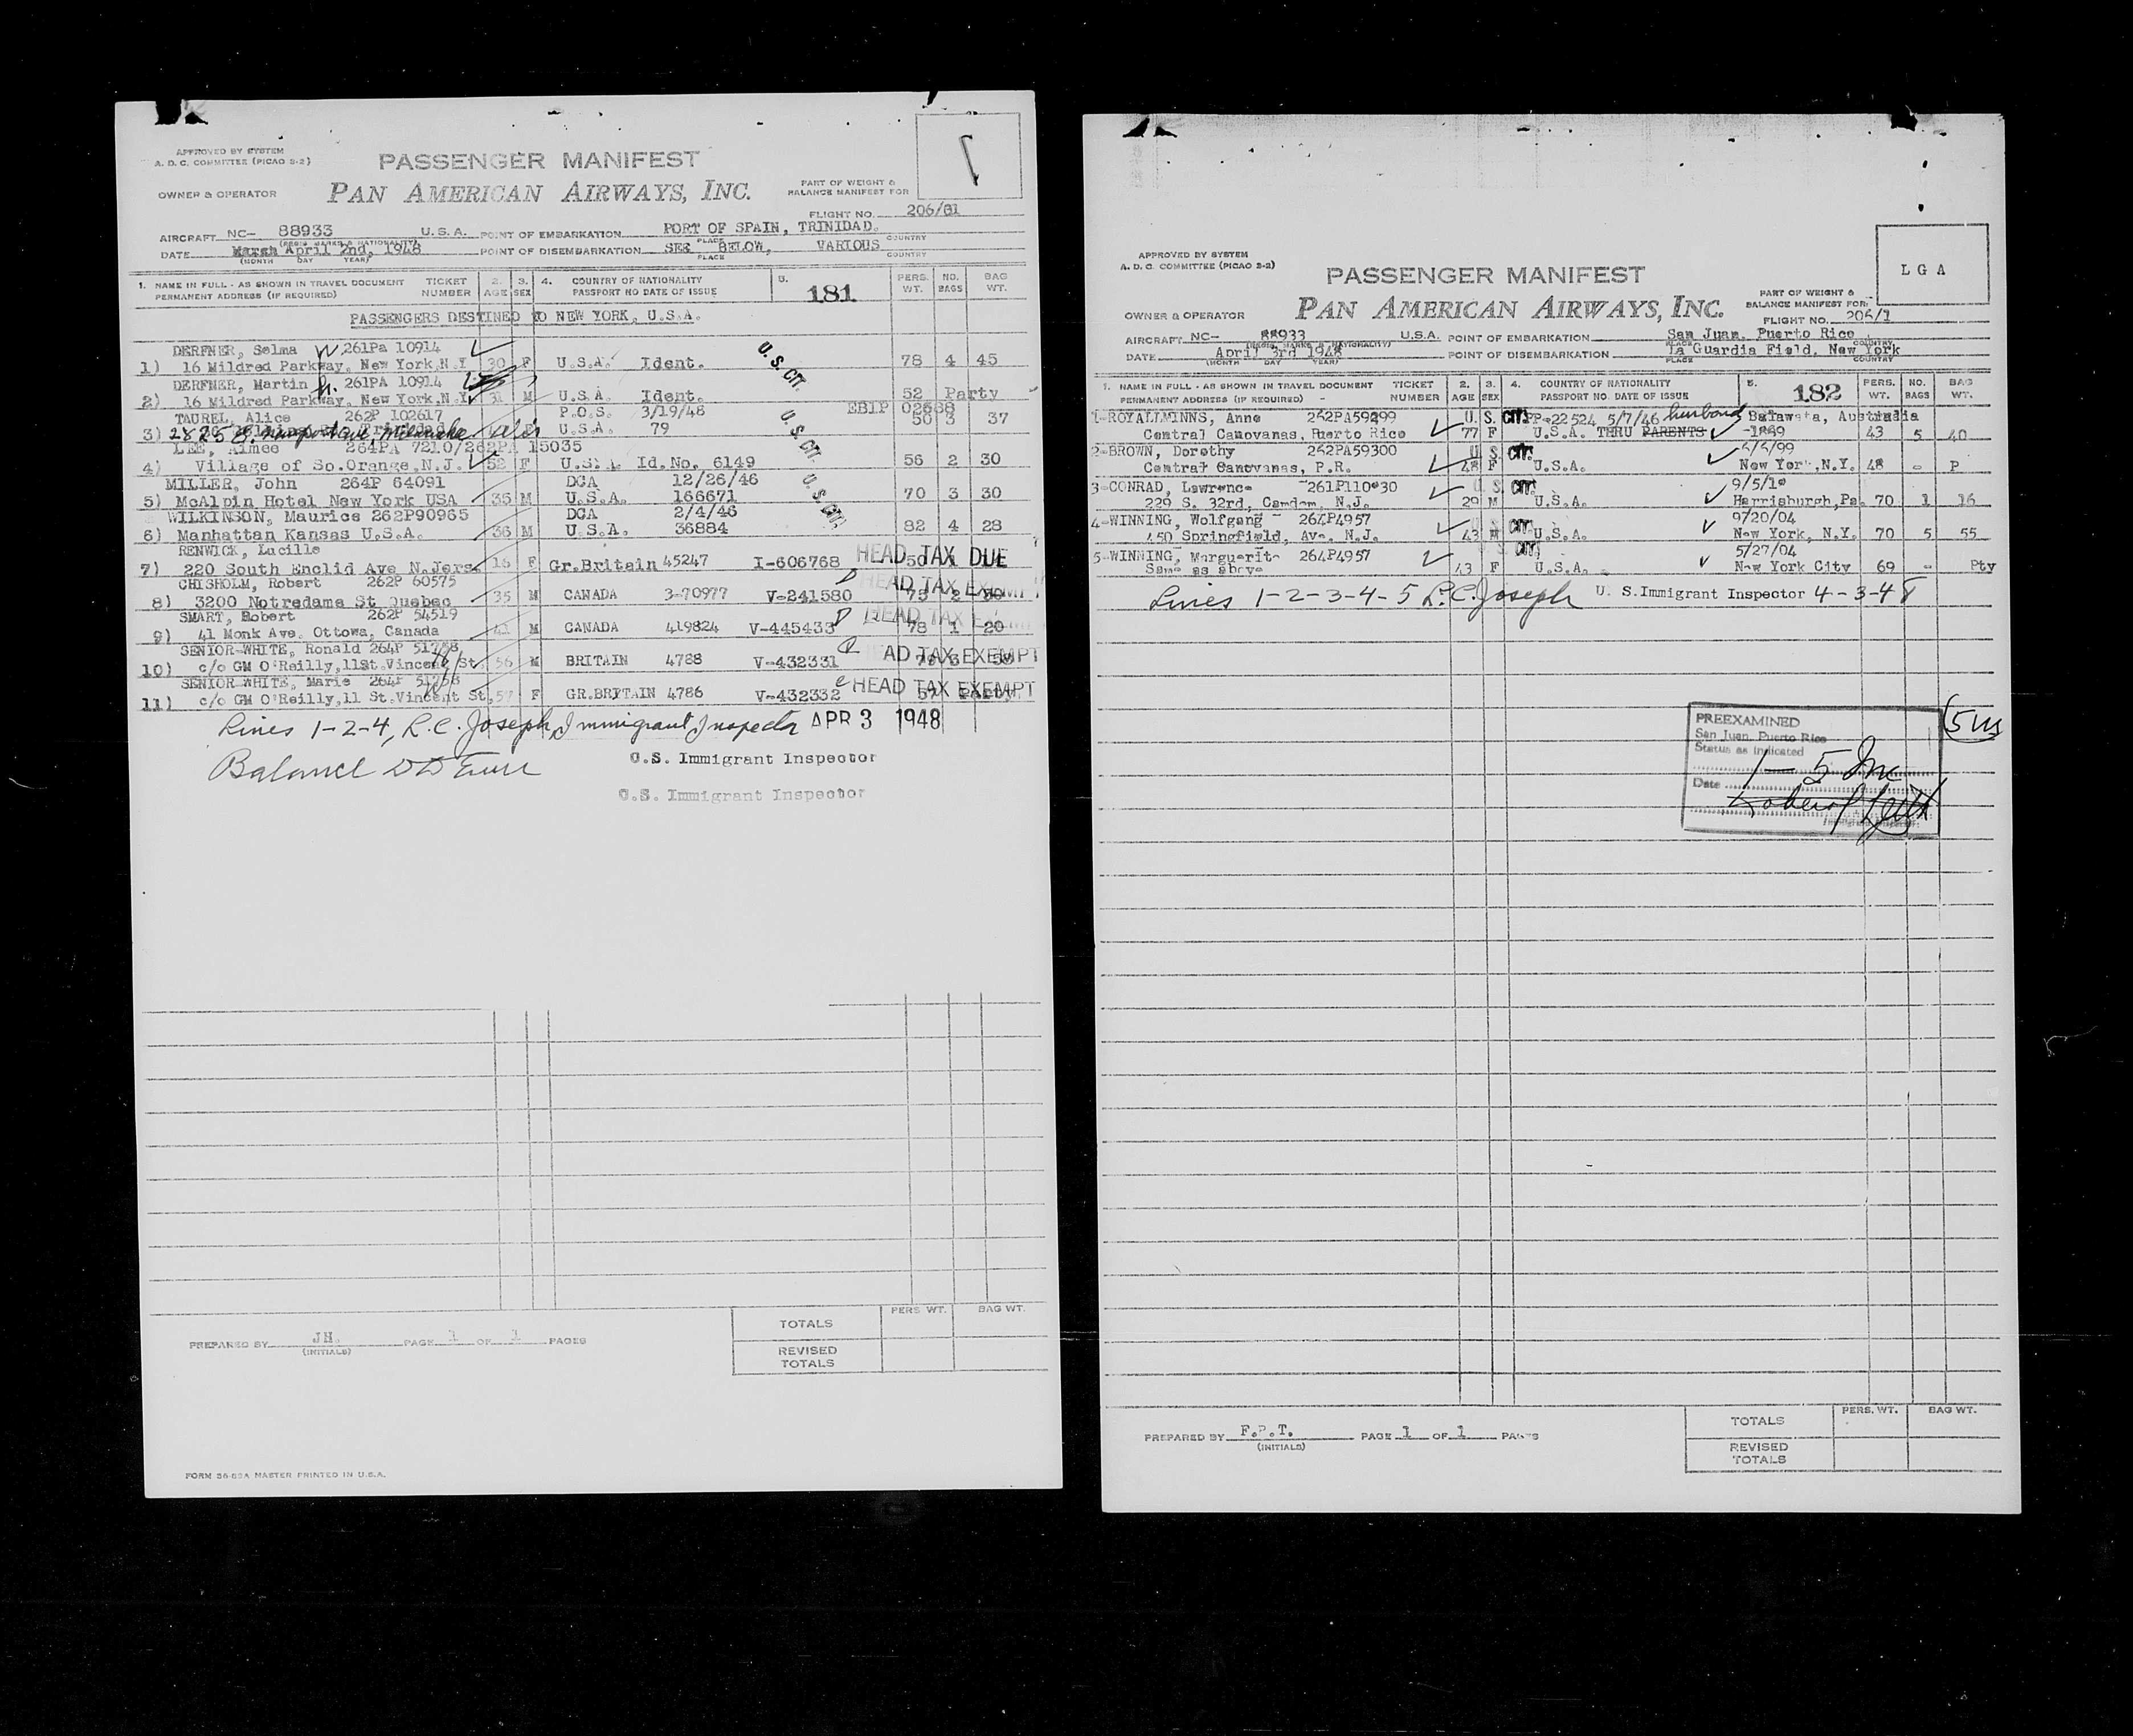 APPROVED BY SYSTEM
A. D. C. COMMITTEE (PICAO S-2)
PASSENGER MANIFEST
OWNER & OPERATOR
PAN AMERICAN AIRWAYS, INC.
PART OF WEIGHT &
BALANCE MANIFEST FOR
FLIGHT NO. 206/31
AIRCRAFT NC- 88933 U.S.A. POINT OF EMBARKATION PORT OF SPAIN, TRINIDAD.
(REGIS. MARKS & NATIONALITY) PLACE COUNTRY
DATE Marsh April 2nd, 1948 POINT OF DISEMBARKATION SEE BELOW, VARIOUS
(MONTH DAY YEAR) PLACE COUNTRY
1. NAME IN FULL - AS SHOWN IN TRAVEL DOCUMENT TICKET 2. 3. 4. COUNTRY OF NATIONALITY 5. 181 PERS. NO. BAG
PERMANENT ADDRESS (IF REQUIRED) NUMBER AGE SEX PASSPORT NO DATE OF ISSUE WT. BAGS WT.
PASSENGERS DESTINED TO NEW YORK, U.S.A.
DERFNER, Selma 261Pa 10914
1) 16 Mildred Parkway, New York,N.Y 30 F U.S.A. Ident. U.S. CIT. 78 4 45
DERFNER, Martin 261PA 10914
2) 16 Mildred Parkway, New York,N.Y. 31 M U.S.A. Ident. 52 Party
TAUREL, Alice 262P 102617 P.O.S. 3/19/48 EBIP
3) U.S.A. 79 U.S. CIT. 50 3 37
LEE, Aimee 264PA 7210/262PA 15035
4) Village of So.Orange,N.J. 52 F U.S.A. Id.No. 6149 56 2 30
MILLER, John 264P 64091 DCA 12/26/46 U.S. CIT.
5) McAlpin Hotel New York USA 35 M U.S.A. 166671 70 3 30
WILKINSON, Maurice 262P90965 DCA 2/4/46
6) Manhattan Kansas U.S.A. 36 M U.S.A. 36884 82 4 28
RENWICK, Lucille
7) 220 South Enclid Ave N.Jers. 16 F Gr.Britain 45247 I-606768 HEAD TAX DUE
CHISHOLM, Robert 262P 60575
8) 3200 Notredame St Quebec 35 M CANADA 3-70977 V-241580 HEAD TAX EXEMPT 75 2 50
SMART, Robert 262P 54519
9) 41 Monk Ave. Ottowa, Canada 41 M CANADA 419824 V-445433 HEAD TAX EXEMPT 78 1 20
SENIOR-WHITE, Ronald 264P 51758
10) c/o GM O'Reilly,11St.Vincent St. 56 M BRITAIN 4788 V-432331 AD TAX EXEMPT
SENIOR WHITE, Marie 264P 51758
11) c/o GM O'Reilly,11 St.Vincent St, 57 F GR.BRITAIN 4786 V-432332 HEAD TAX EXEMPT
Lines 1-2-4, R.C. Joseph, Immigrant Inspector APR 3 1948
Balance
U.S. Immigrant Inspector
U.S. Immigrant Inspector
PERS. WT. BAG WT.
TOTALS
PREPARED BY JH. PAGE 1 OF 1 PAGES
(INITIALS)
REVISED
TOTALS
FORM 26-83A MASTER PRINTED IN U.S.A.
APPROVED BY SYSTEM
A. D. C. COMMITTEE (PICAO S-2)
LGA
PASSENGER MANIFEST
OWNER & OPERATOR
PAN AMERICAN AIRWAYS, INC.
PART OF WEIGHT &
BALANCE MANIFEST FOR:
FLIGHT NO. 206/1
AIRCRAFT NC- 88933 U.S.A. POINT OF EMBARKATION San Juan, Puerto Rico
(REGIS. MARKS & NATIONALITY) PLACE COUNTRY
DATE April 3rd 1948 POINT OF DISEMBARKATION La Guardia Field, New York
(MONTH DAY YEAR) PLACE COUNTRY
1. NAME IN FULL - AS SHOWN IN TRAVEL DOCUMENT TICKET 2. 3. 4. COUNTRY OF NATIONALITY 5. 182 PERS. NO. BAG
PERMANENT ADDRESS (IF REQUIRED) - NUMBER AGE SEX PASSPORT NO. DATE OF ISSUE WT. BAGS WT.
1-ROYALLMINNS, Anne 262PA59299 U. S. CIT. PP-22524 5/7/46 husband Balawata, Australia
Central Canovanas, Puerto Rico 77 F U.S.A. THRU PARENTS 43 5 40
2-BROWN, Dorothy 262PA59300 U. S. CIT.
Central Canovanas, P.R. 48 F U.S.A. New York,N.Y. 48 - P
3-CONRAD, Lawrence U. S. CIT.
229 S. 32rd, Camden, N.J. 29 M U.S.A. Harrisburgh,Pa. 70 1 16
4-WINNING, Wolfgang 264P4957 U. S. CIT. 9/20/04
450 Springfield, Ave. N.J. 43 M U.S.A. New York, N.Y. 70 5 55
5-WINNING, Marguerite 264P4957 U. S. CIT. 5/27/04
Same as above 43 F U.S.A. New York City 69 - Pty
Lines 1-2-3-4-5 R.C. Joseph U. S.Immigrant Inspector 4-3-48
PREEXAMINED
San Juan, Puerto Rico
Status as indicated
1-5 Inc
Date
PERS. WT. BAG WT.
TOTALS
PREPARED BY F.P.T. PAGE 1 OF 1 PAGES
(INITIALS)
REVISED
TOTALS